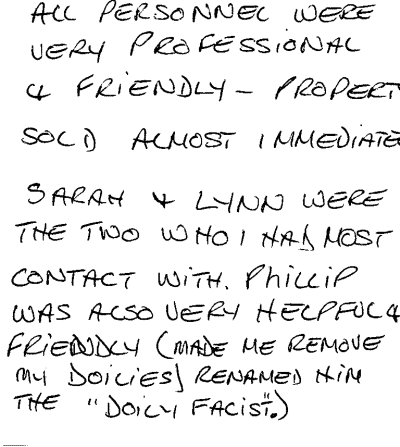 ALL PERSONNEL WERE
VERY PROFESSIONAL
& FRIENDLY – PROPERT
SOLD ALMOST IMMEDIATE
SARAH & LYNN WERE
THE TWO WHO I HAD MOST
CONTACT WITH. PhILLIP
WAS ALSO VERY HELPFUL &
FRIENDLY (MADE ME REMOVE
MY DOILIES) RENAMED HIM
THE "DOILY FACIST".)